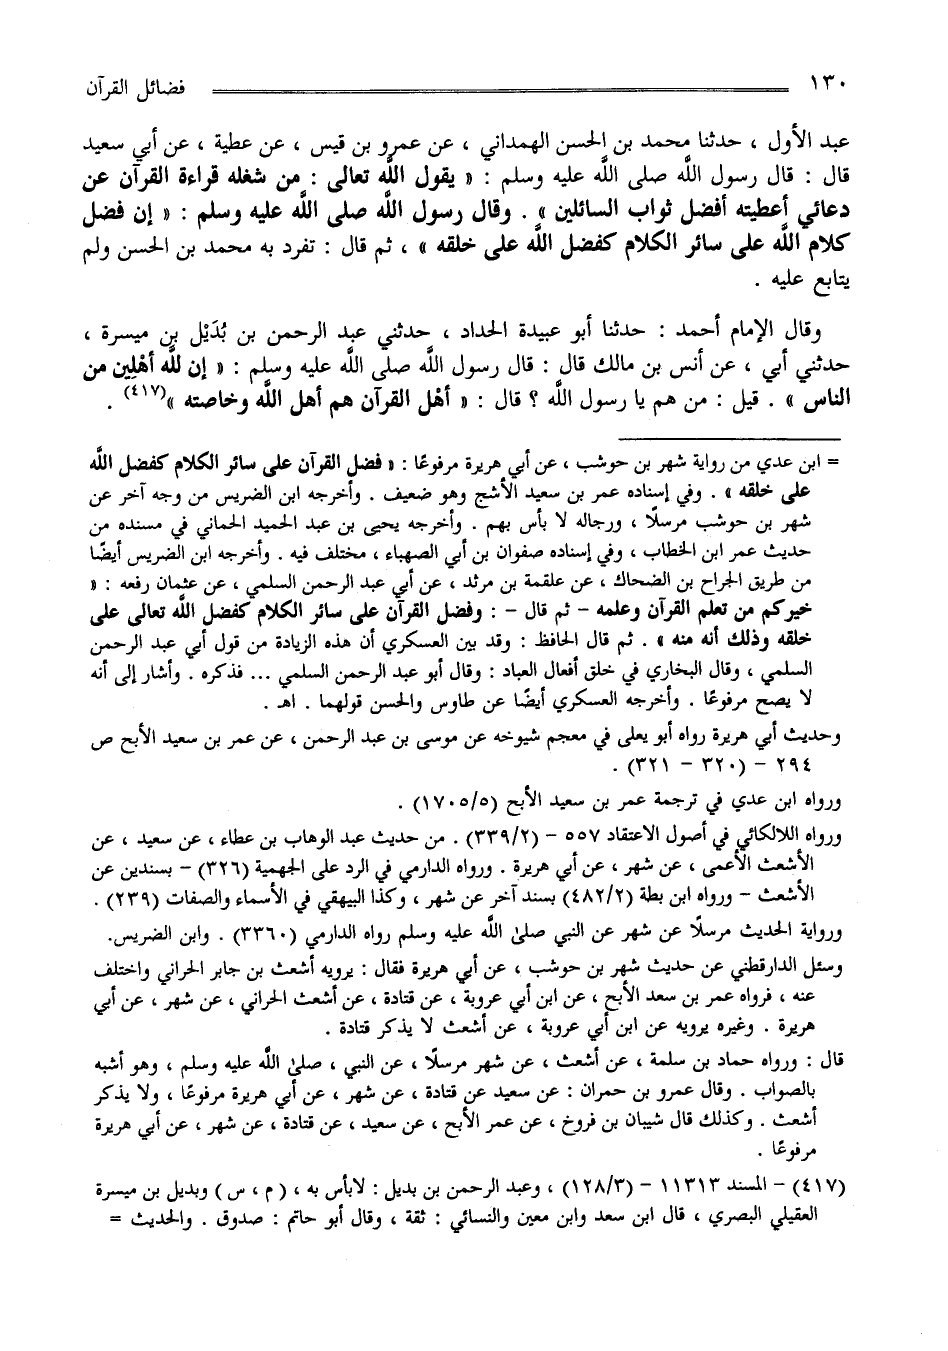 ١٣٠ فضائل القرآن
عبد الأول ، حدثنا محمد بن الحسن الهمداني ، عن عمرو بن قيس ، عن عطية ، عن أبي سعيد
قال : قال رسول الله صلى الله عليه وسلم : « يقول الله تعالى : من شغله قراءة القرآن عن
دعائي أعطيته أفضل ثواب السائلين » . وقال رسول الله صلى الله عليه وسلم : « إن فضل
كلام الله على سائر الكلام كفضل الله على خلقه » ، ثم قال : تفرد به محمد بن الحسن ولم
يتابع عليه .
وقال الإمام أحمد : حدثنا أبو عبيدة الحداد ، حدثني عبد الرحمن بن بُدَيْل بن ميسرة ،
حدثني أبي ، عن أنس بن مالك قال : قال رسول الله صلى الله عليه وسلم : « إن لله أهْلِين من
الناس » . قيل : من هم يا رسول الله ؟ قال : « أهْل القرآن هم أهل الله وخاصته »(٤١٧) .
= ابن عدي من رواية شهر بن حوشب ، عن أبي هريرة مرفوعًا : « فضل القرآن على سائر الكلام كفضل الله
على خلقه » . وفي إسناده عمر بن سعيد الأشج وهو ضعيف . وأخرجه ابن الضريس من وجه آخر عن
شهر بن حوشب مرسلًا ، ورجاله لا بأس بهم . وأخرجه يحيى بن عبد الحميد الحماني في مسنده من
حديث عمر ابن الخطاب ، وفي إسناده صفوان بن أبي الصهباء ، مختلف فيه . وأخرجه ابن الضريس أيضًا
من طريق الجراح بن الضحاك ، عن علقمة بن مرثد ، عن أبي عبد الرحمن السلمي ، عن عثمان رفعه : «
خيركم من تعلم القرآن وعلمه – ثم قال – : وفضل القرآن على سائر الكلام كفضل الله تعالى على
خلقه وذلك أنه منه » . ثم قال الحافظ : وقد بين العسكري أن هذه الزيادة من قول أبي عبد الرحمن
السلمي ، وقال البخاري في خلق أفعال العباد : وقال أبو عبد الرحمن السلمي ... فذكره . وأشار إلى أنه
لا يصح مرفوعًا . وأخرجه العسكري أيضًا عن طاوس والحسن قولهما . اهـ .
وحديث أبي هريرة رواه أبو يعلى في معجم شيوخه عن موسى بن عبد الرحمن ، عن عمر بن سعيد الأبح ص
٢٩٤ – (٣٢٠ – ٣٢١) .
ورواه ابن عدي في ترجمة عمر بن سعيد الأبح (١٧٠٥/٥) .
ورواه اللالكائي في أصول الاعتقاد ٥٥٧ – (٣٣٩/٢) . من حديث عبد الوهاب بن عطاء ، عن سعيد ، عن
الأشعث الأعمى ، عن شهر ، عن أبي هريرة . ورواه الدارمي في الرد على الجهمية (٣٢٦) – بسندين عن
الأشعث – ورواه ابن بطة (٤٨٢/٢) بسند آخر عن شهر ، وكذا البيهقي في الأسماء والصفات (٢٣٩) .
ورواية الحديث مرسلًا عن شهر عن النبي صلى الله عليه وسلم رواه الدارمي (٣٣٦٠) . وابن الضريس.
وسئل الدارقطني عن حديث شهر بن حوشب ، عن أبي هريرة فقال : يرويه أشعث بن جابر الحراني واختلف
عنه ، فرواه عمر بن سعد الأبح ، عن ابن أبي عروبة ، عن قتادة ، عن أشعث الحراني ، عن شهر ، عن أبي
هريرة . وغيره يرويه عن ابن أبي عروبة ، عن أشعث لا يذكر قتادة .
قال : ورواه حماد بن سلمة ، عن أشعث ، عن شهر مرسلًا ، عن النبي ، صلى الله عليه وسلم ، وهو أشبه
بالصواب . وقال عمرو بن حمران : عن سعيد عن قتادة ، عن شهر ، عن أبي هريرة مرفوعًا ، ولا يذكر
أشعث . وكذلك قال شيبان بن فروخ ، عن عمر الأبح ، عن سعيد ، عن قتادة ، عن شهر ، عن أبي هريرة
مرفوعًا .
(٤١٧) – المسند ١١٣١٣ – (١٢٨/٣) ، وعبد الرحمن بن بديل : لابأس به ، ( م ، س ) وبديل بن ميسرة
العقيلي البصري ، قال ابن سعد وابن معين والنسائي : ثقة ، وقال أبو حاتم : صدوق . والحديث =